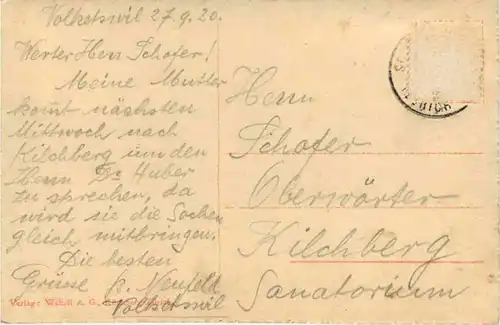 Volketswil 27.9.20.
Werter Herr Schofer!
Meine Mutter
komt nächsten
Mittwoch nach
Kilchberg um den
Herrn Dr Huber
zu sprechen, da
wird sie die Sachen
gleich mitbringen.
Die besten
Grüsse Neufeld
Volketswil
Verlag: Wehrli A. G.,
Herrn
Schofer
Oberwärter
Kilchberg
Sanatorium